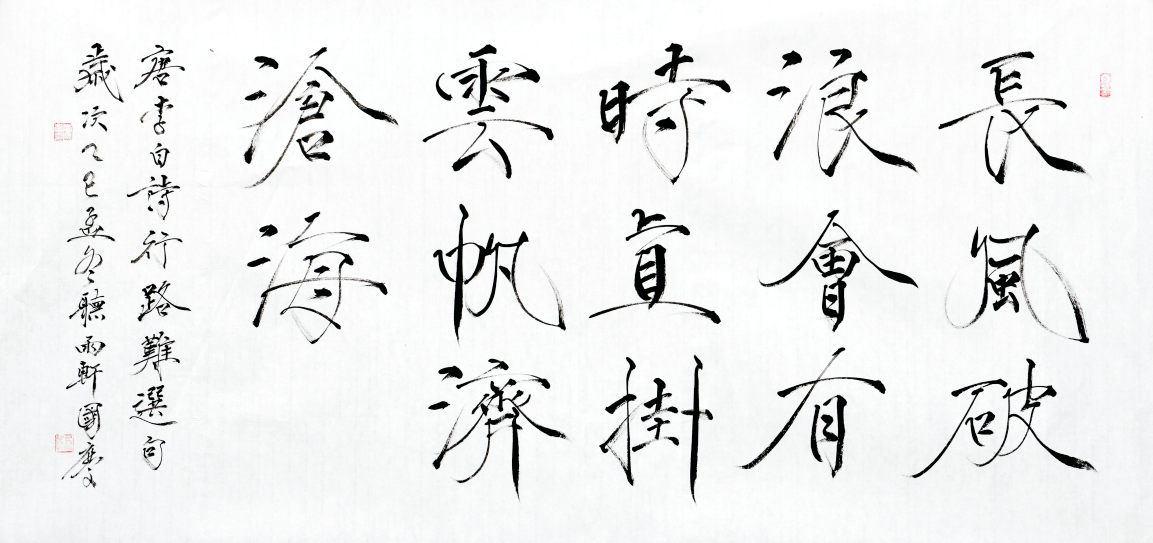 長風破
浪會有
時直掛
雲帆濟
滄海
唐李白詩行路難選句
歲次乙巳孟冬聽雨軒國慶